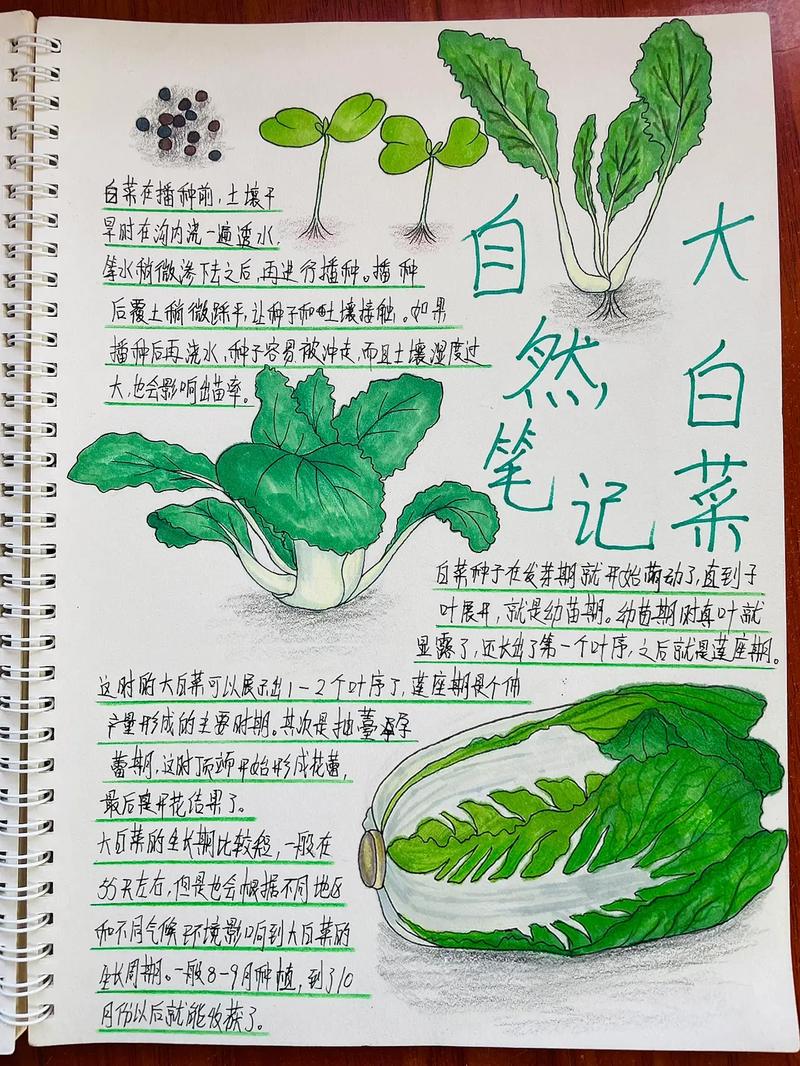 自然笔记
大白菜
白菜在播种前，土壤干
旱时在沟内浇一遍透水，
等水稍微渗下去之后，再进行播种。播种
后覆土稍微踩平，让种子和土壤接触。如果
播种后再浇水，种子容易被冲走，而且土壤湿度过
大，也会影响出苗率。
白菜种子在发芽期就开始萌动了，直到子
叶展开，就是幼苗期。幼苗期时真叶就
显露了，还长出了第一个叶序，之后就是莲座期。
这时的大白菜可以展示出1－2个叶序了，莲座期是个体
产量形成的主要时期。其次是抽薹孕
蕾期，这时顶端开始形成花蕾，
最后是开花结果了。
大白菜的生长期比较短，一般在
55天左右，但是也会根据不同地区
和不同气候环境影响到大白菜的
生长周期。一般8－9月种植，到了10
月份以后就能收获了。